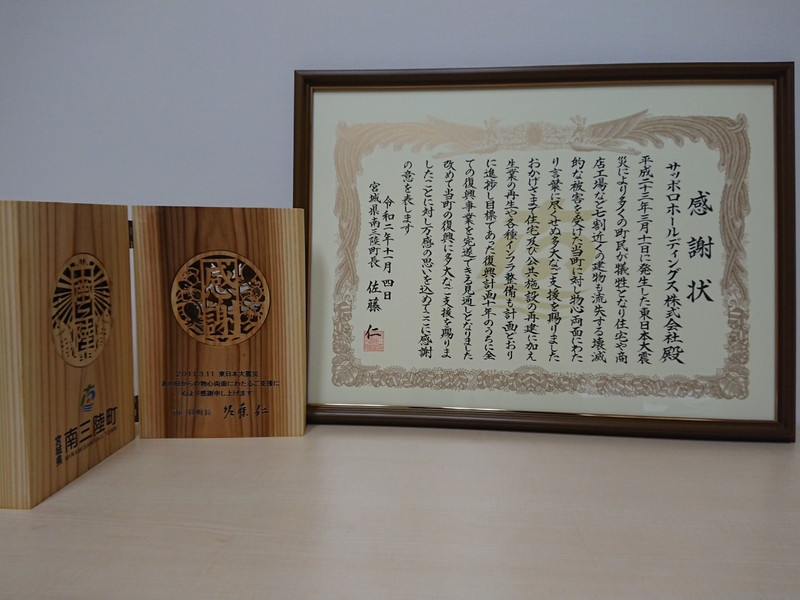 感謝状
サッポロホールディングス株式会社 殿
平成二十三年三月十一日に発生した東日本大震
災により多くの町民が犠牲となり住宅や商
店工場など七割近くの建物も流失する壊滅
的な被害を受けた当町に対し物心両面にわた
り言葉に尽くせぬ多大なご支援を賜りました
おかげさまで住宅及び公共施設の再建に加え
生業の再生や各種インフラ整備も計画どおり
に進捗し目標であった復興計画十年のうちに全
ての復興事業を完遂できる見通しとなりました
改めて当町の復興に多大なご支援を賜りま
したことに対し万感の思いを込めてここに感謝
の意を表します
令和二年十一月四日
宮城県南三陸町長 佐藤 仁
南三陸
宮城県 南三陸町
感謝
2011.3.11 東日本大震災
あの日からの物心両面にわたるご支援に
心より感謝申し上げます
佐藤 仁